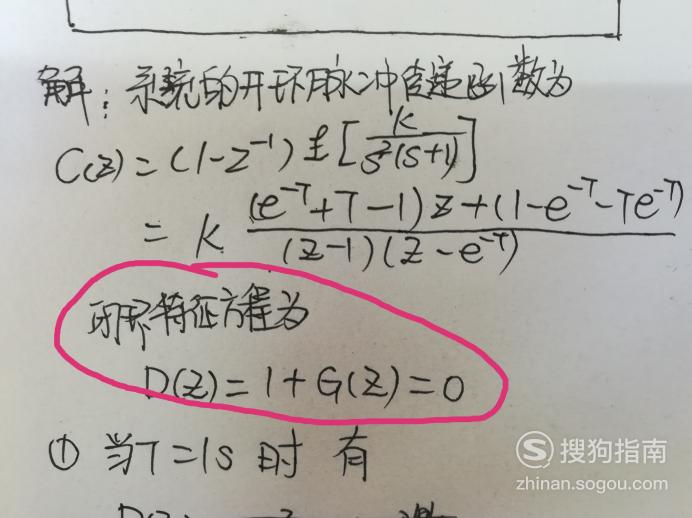 解：系统的开环脉冲传递函数为
G(z)=(1-z⁻¹)Z[K/s²(s+1)]
=K (e^{-T}+T-1)z+(1-e^{-T}-Te^{-T})/(z-1)(z-e^{-T})
闭环特征方程为
D(z)=1+G(z)=0
① 当T=1s时 有
搜狗指南
zhinan.sogou.com